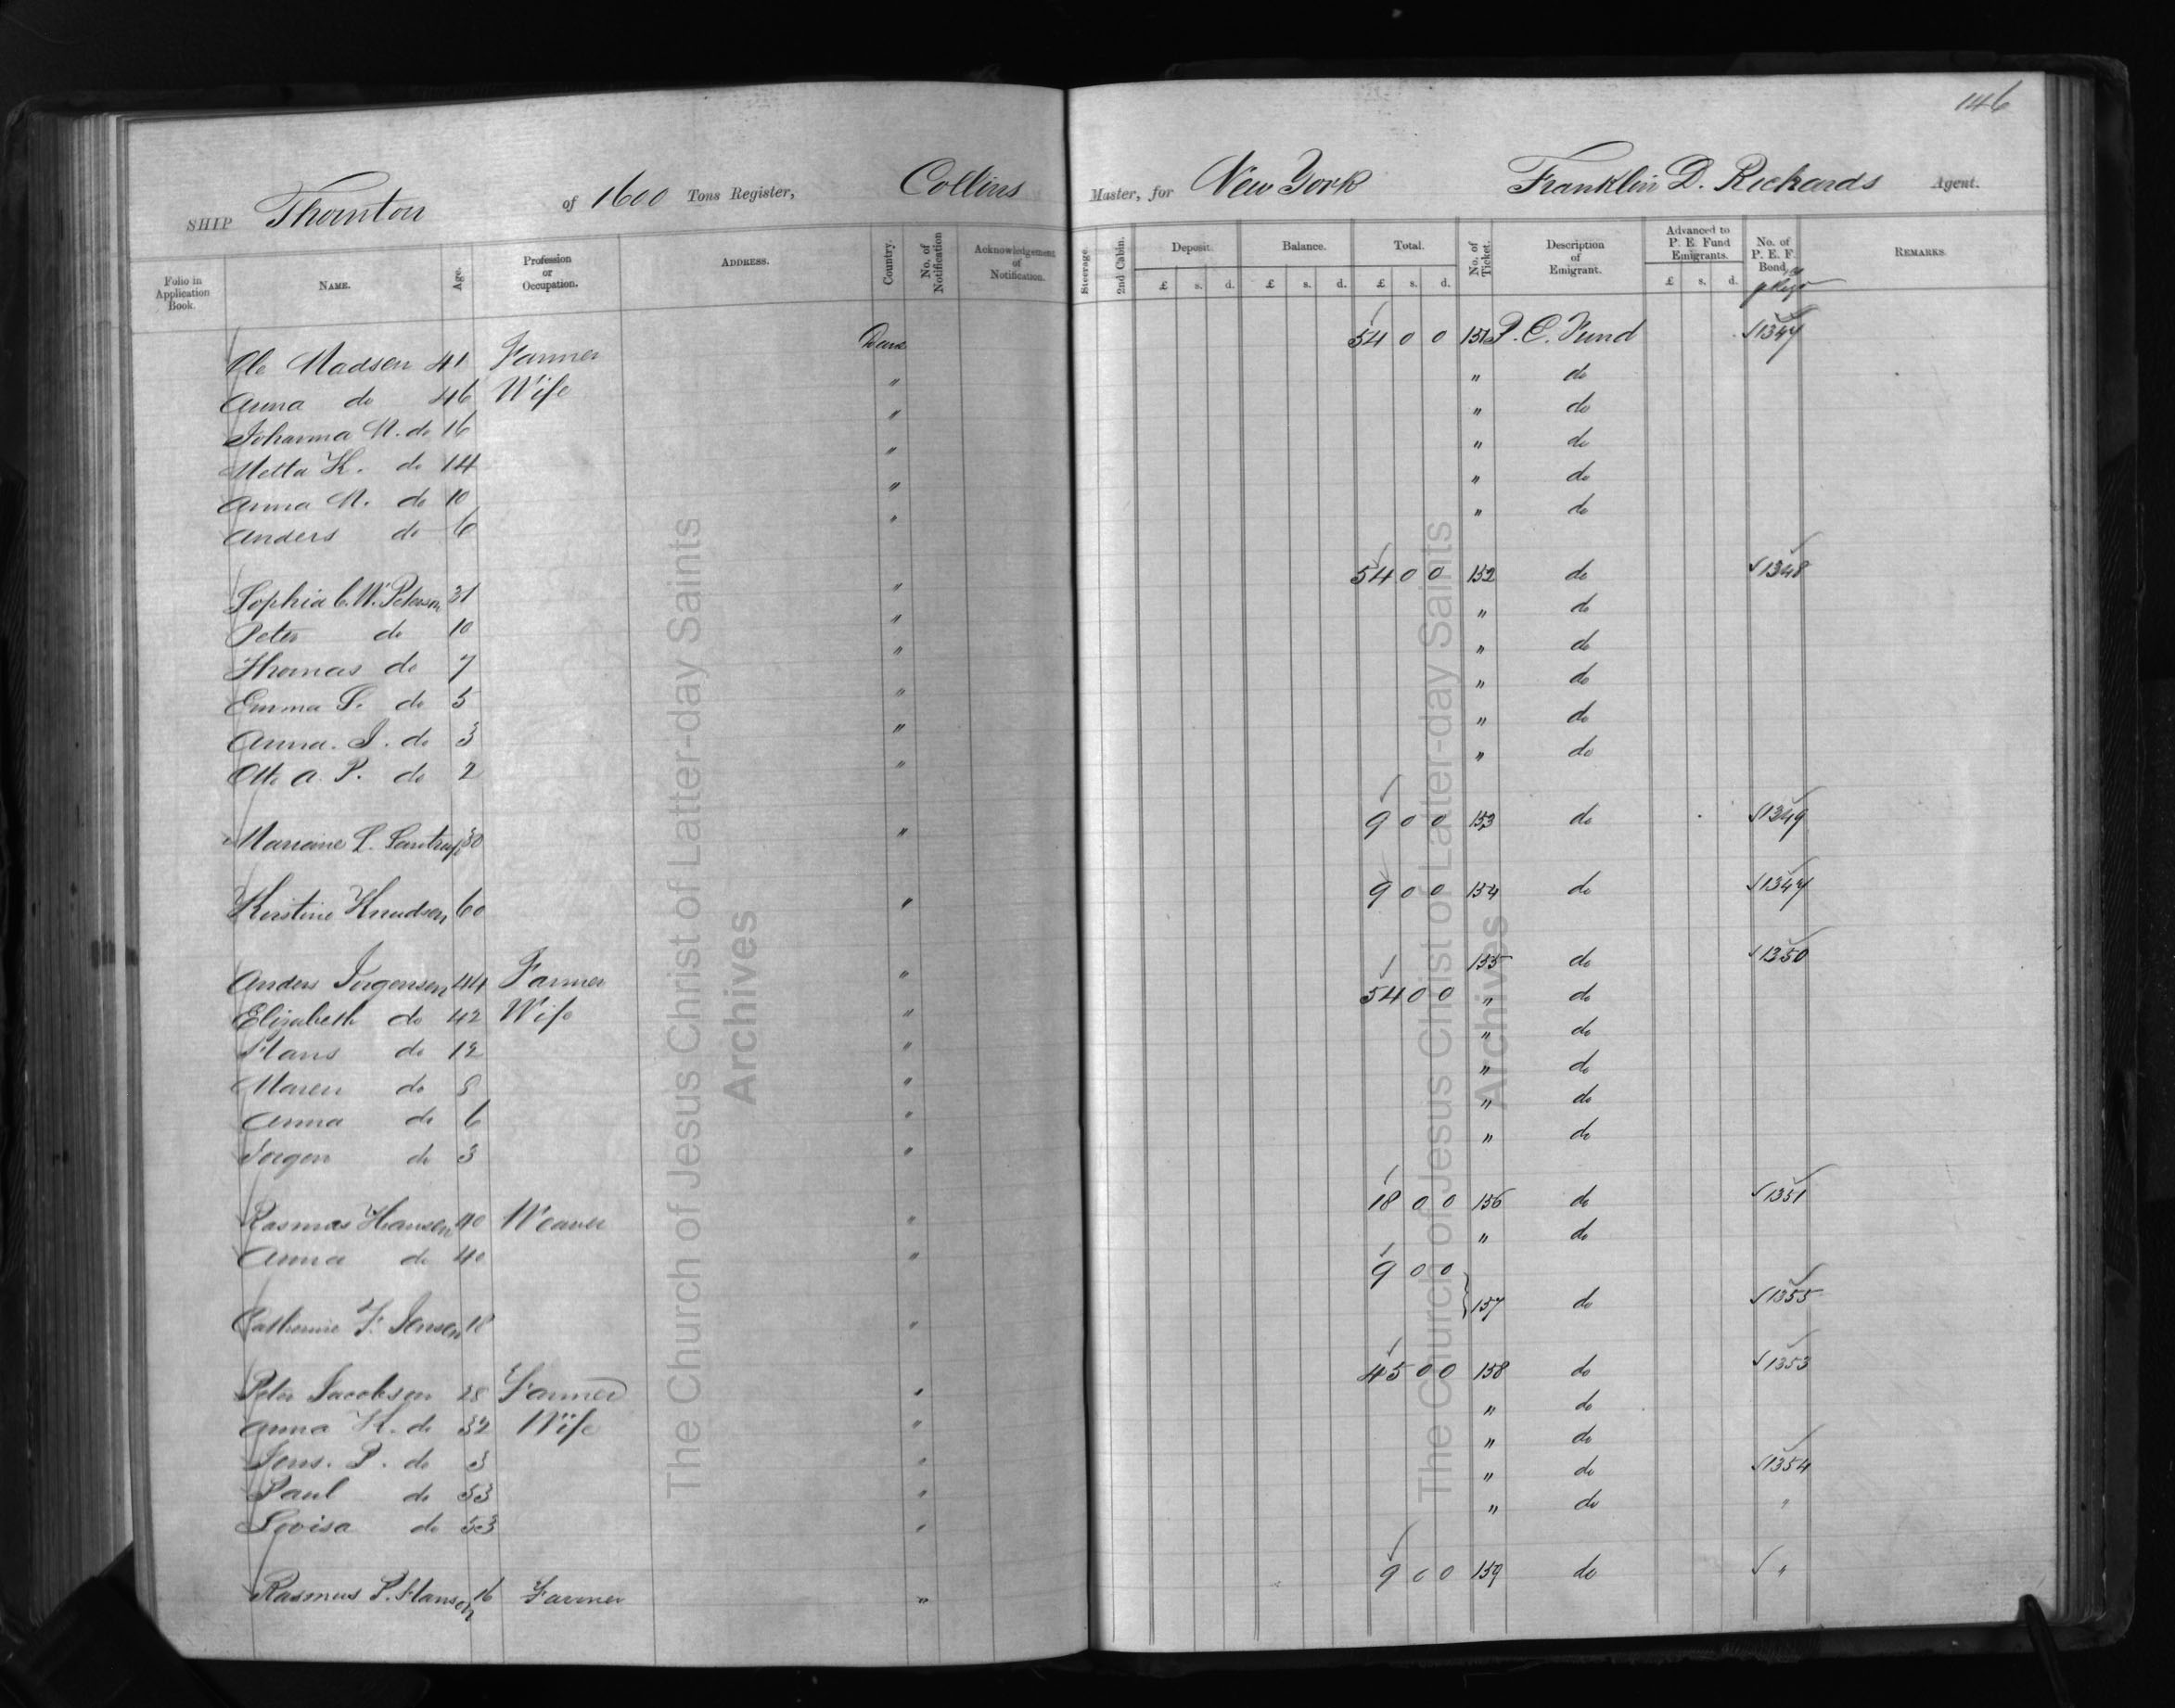 146
SHIP Thornton of 1600 Tons Register, Collins Master, for New York Franklin D. Richards Agent.
Folio in Application Book. NAME. Age. Profession or Occupation. ADDRESS. Country. No. of Notification Acknowledgement of Notification. Steerage 2nd Cabin. Deposit. Balance. Total. No. of Ticket. Description of Emigrant. Advanced to P. E. Fund Emigrants. No. of P. E. F. Bond REMARKS.
£ s. d. £ s. d. £ s. d. £ s. d.
Ole Madsen 41 Farmer Den 54 0 0 151 P. E. Fund 1347
Anna do 46 Wife " " do
Johanna M. do 16 " " do
Metta K. do 14 " " do
Anna M. do 10 " " do
Anders do 6 " " do
Sophia C. W. Peterson 31 " 54 0 0 152 do 1348
Peter do 10 " " do
Thomas do 7 " " do
Emma S. do 5 " " do
Anna. J. do 3 " " do
Otto A. P. do 2 " " do
Mariane L. 30 " 9 0 0 153 do 1349
Kerstine Knudsen 60 " 9 0 0 154 do 1347
Anders Jorgensen 44 Farmer " 155 do 1350
Elizabeth do 42 Wife " 54 0 0 " do
Hans do 12 " " do
Maren do 8 " " do
Anna do 6 " " do
Jorgen do 3 " " do
Rasmus Hansen 40 Weaver " 18 0 0 156 do 1351
Anna do 40 " " do
9 0 0
Catherine F. Jensen 18 " 157 do 1355
Peter Jacobsen 28 Farmer " 45 0 0 158 do 1353
Anna K. do 32 Wife " " do
Jens. P. do 3 " " do
Paul do 53 " " do 1354
Lovisa do 53 " " do "
Rasmus P. Hansen 16 Farmer " 9 0 0 159 do "
The Church of Jesus Christ of Latter-day Saints
Archives
The Church of Jesus Christ of Latter-day Saints
Archives